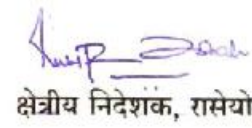 क्षेत्रीय निदेशक, रासेयो